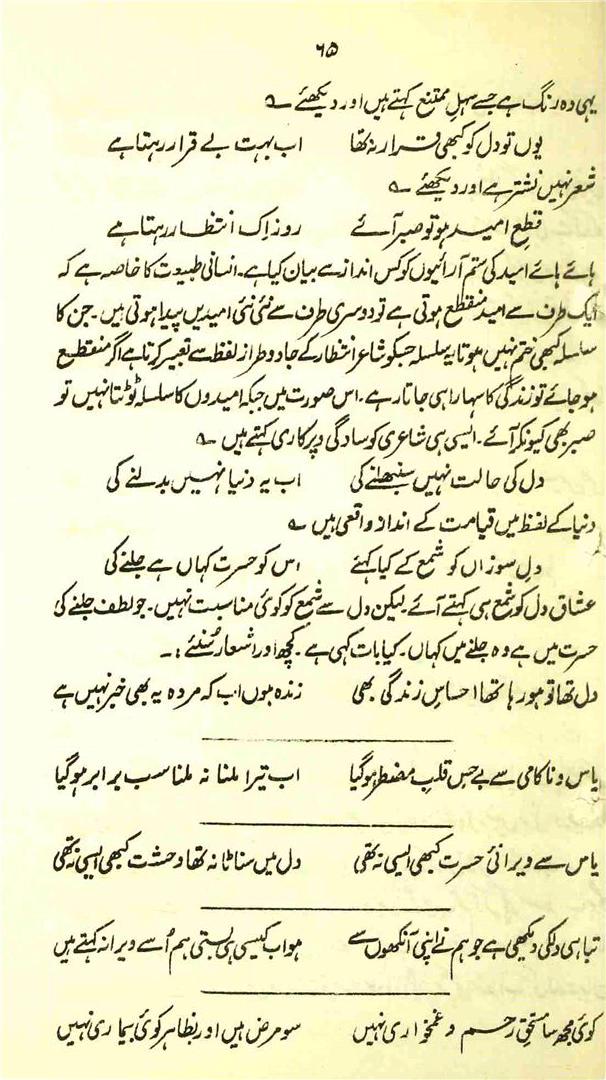 ۶۵
یہی وہ رنگ ہے جسے سہلِ ممتنع کہتے ہیں اور دیکھئے ؎
یوں تو دل کو کبھی قرار نہ تھا اب بہت بے قرار رہتا ہے
شعر نہیں نشتر ہے اور دیکھئے ؎
قطعِ امید ہو تو صبر آئے روز اِک انتظار رہتا ہے
ہائے ہائے امید کی ستم آرائیوں کو کس انداز سے بیان کیا ہے۔ انسانی طبیعت کا خاصہ ہے کہ
ایک طرف سے امید منقطع ہوتی ہے تو دوسری طرف سے نئی نئی امیدیں پیدا ہوتی ہیں۔ جن کا
سلسلہ کبھی ختم نہیں ہوتا یہ سلسلہ جسکو شاعر انتظار کے جادو طراز لفظ سے تعبیر کرتا ہے اگر منقطع
ہو جائے تو زندگی کا سہارا ہی جاتا رہے۔ اس صورت میں جبکہ امیدوں کا سلسلہ ٹوٹتا نہیں تو
صبر بھی کیونکر آئے۔ ایسی ہی شاعری کو سادگی و پرکاری کہتے ہیں ؎
دل کی حالت نہیں سنبھلنے کی اب یہ دنیا نہیں بدلنے کی
دنیا کے لفظ میں قیامت کے انداز واقعی ہیں ؎
دلِ سوزاں کو شمع کے کیا کہئے اس کو حسرت کہاں ہے جلنے کی
عشاق دل کو شمع ہی کہتے آئے۔ لیکن دل سے شمع کو کوئی مناسبت نہیں۔ جو لطف جلنے کی
حسرت میں ہے وہ جلنے میں کہاں۔ کیا بات کہی ہے۔ کچھ اور اشعار سُنئے :۔
دل تھا تو ہو رہا تھا احساسِ زندگی بھی زندہ ہوں اب کہ مردہ یہ بھی خبر نہیں ہے
یاس و ناکامی سے بے حس قلبِ مضطر ہو گیا اب تیرا ملنا نہ ملنا سب برابر ہو گیا
یاس سے ویرانیٔ حسرت کبھی ایسی نہ تھی دل میں سناٹا نہ تھا وحشت کبھی ایسی نہ تھی
تباہی دلکی دیکھی ہے جو ہم نے اپنی آنکھوں سے ہو اب کیسی ہی بستی ہم اُسے ویرانہ کہتے ہیں
کوئی مجھ سا مستحقِ رحم و غمخواری نہیں سو مرض ہیں اور بظاہر کوئی بیماری نہیں